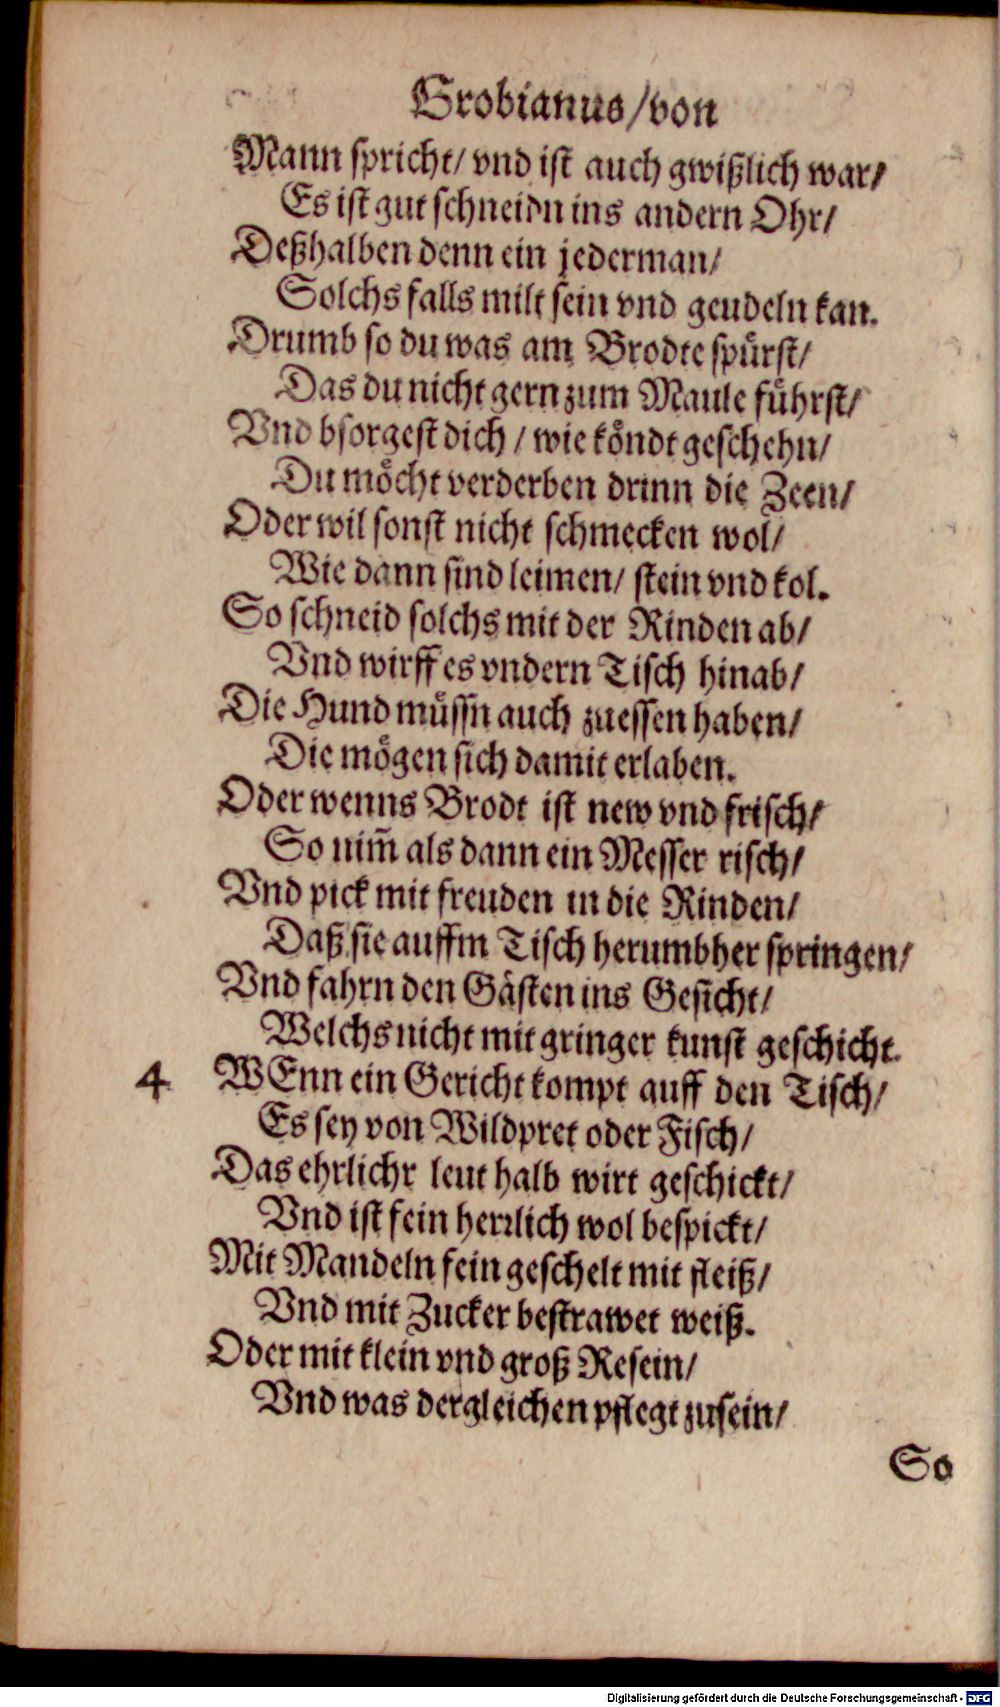 Grobianus/von
Mann spricht/ vnd ist auch gwißlich war/
Es ist gut schneidn ins andern Ohr/
Deßhalben denn ein jederman/
Solchs falls milt sein vnd geudeln kan.
Drumb so du was am Brodte spürst/
Das du nicht gern zum Maule führst/
Vnd bsorgest dich / wie köndt geschehn/
Du möcht verderben drinn die Zeen/
Oder wil sonst nicht schmecken wol/
Wie dann sind leimen/ stein vnd kol.
So schneid solchs mit der Rinden ab/
Vnd wirff es vndern Tisch hinab/
Die Hund müssn auch zuessen haben/
Die mögen sich damit erlaben.
Oder wenns Brodt ist new vnd frisch/
So nim̃ als dann ein Messer risch/
Vnd pick mit freuden in die Rinden/
Daß sie auffm Tisch herumbher springen/
Vnd fahrn den Gästen ins Gesicht/
Welchs nicht mit gringer kunst geschicht.
4 WEnn ein Gericht kompt auff den Tisch/
Es sey von Wildpret oder Fisch/
Das ehrlichr leut halb wirt geschickt/
Vnd ist fein herrlich wol bespickt/
Mit Mandeln fein geschelt mit fleiß/
Vnd mit Zucker bestrawet weiß.
Oder mit klein vnd groß Resein/
Vnd was dergleichen pflegt zusein/
So
Digitalisierung gefördert durch die Deutsche Forschungsgemeinschaft - DFG